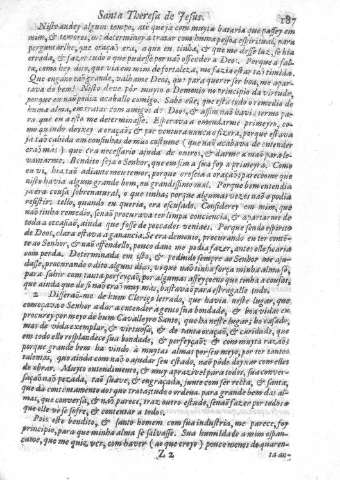 Santa Theresa de Jesus. 187
Nisto andey algum tempo, até que já com muyta bataria que passey em
mim, & temores, me determiney a tratar com huma pessoa espiritual, para
perguntarlhe, que oração era, a que eu tinha, & que me desse luz, se hia
errada, & fazer tudo o que pudesse por não offender a Deos. Porque a fal-
ta, como hey dito, que via em mim de fortaleza, me fazia estar tão timida.
Que engano tão grande, valhame Deos, que para querer ser boa, me apar-
tava do bem! Nisto deve pôr muyto o Demonio no principio da virtude,
porque eu não podia acabalo comigo. Sabe elle, que está todo o remedio de
huma alma, em tratar com amigos de Deos, & assim não havia termo pa-
ra que eu a isto me determinasse. Esperava a emendarme primeyro, co-
mo quando deyxey a oração; & por ventura nunca o fizera, porque estava
já tão cahida em cousinhas de máo costume (que não acabava de entender
erão más) que era necessario ajuda de outros, & darme a mão para le-
vantarme. Bendito seja o Senhor, que em fim a sua foy a primeyra. Como
eu vi, hia tão adiante meu temor, porque crescia a oração; pareceome que
nisto havia algum grande bem, ou grandissimo mal. Porque bem entendia
já era cousa sobrenatural, o que tinha, porque algumas vezes não o podia
resistir; telo, quando eu queria, era escusado. Considerey em mim, que
não tinha remedio, senão procurava ter limpa conciencia, & apartarme de
toda a occasião, ainda que fosse de peccados veniaes. Porque sendo espirito
de Deos, clara estava a ganancia. Se era demonio, procurando eu ter conten-
te ao Senhor, & não offendello, pouco dano me podia fazer, antes elle ficaria
com perda. Determinada em isto, & pedindo sempre ao Senhor me aju-
dasse, procurando o dito alguns dias, vi que não tinha força minha alma só,
para sahir com tanta perfeyção, por algumas affeyçoens que tinha a cousas,
que ainda que de si não eraõ muy más, bastavão para estragallo tudo.
2 Disseraõ-me de hum Clerigo letrado, que havia neste lugar, que
começava o Senhor a dar a entender a gente sua bondade, & boa vida: eu
procurey por meyo de hum Cavalleyro Santo, que ha neste lugar; he casado,
mas de vida exemplar, & virtuosa, & de tanta oração, & caridade, que
em todo elle resplandece sua bondade, & perfeyção; & com muyta razaõ:
porque grande bem ha vindo à muytas almas por seu meyo, por ter tantos
talentos, que ainda com não o ajudar seu estado, não póde deyxar com elles
de obrar. Muyto entendimento, & muy aprazivel para todos, sua conver-
sação não pezada, taõ suave, & engraçada, junto com ser recta, & santa,
que dá contentamento aos que trata: tudo o ordena para grande bem das al-
mas, que conversa, & não parece, traz outro estudo, senão fazer por todos o
que elle vê se sofre, & contentar a todos.
Pois este bendito, & santo homem com sua industria, me parece, foy
principio, para que minha alma se salvasse. Sua humildade a mim espan-
tame, que me quiz ver, com haver (ao que creyo) pouco menos de quaren-
Z 2
ta an-